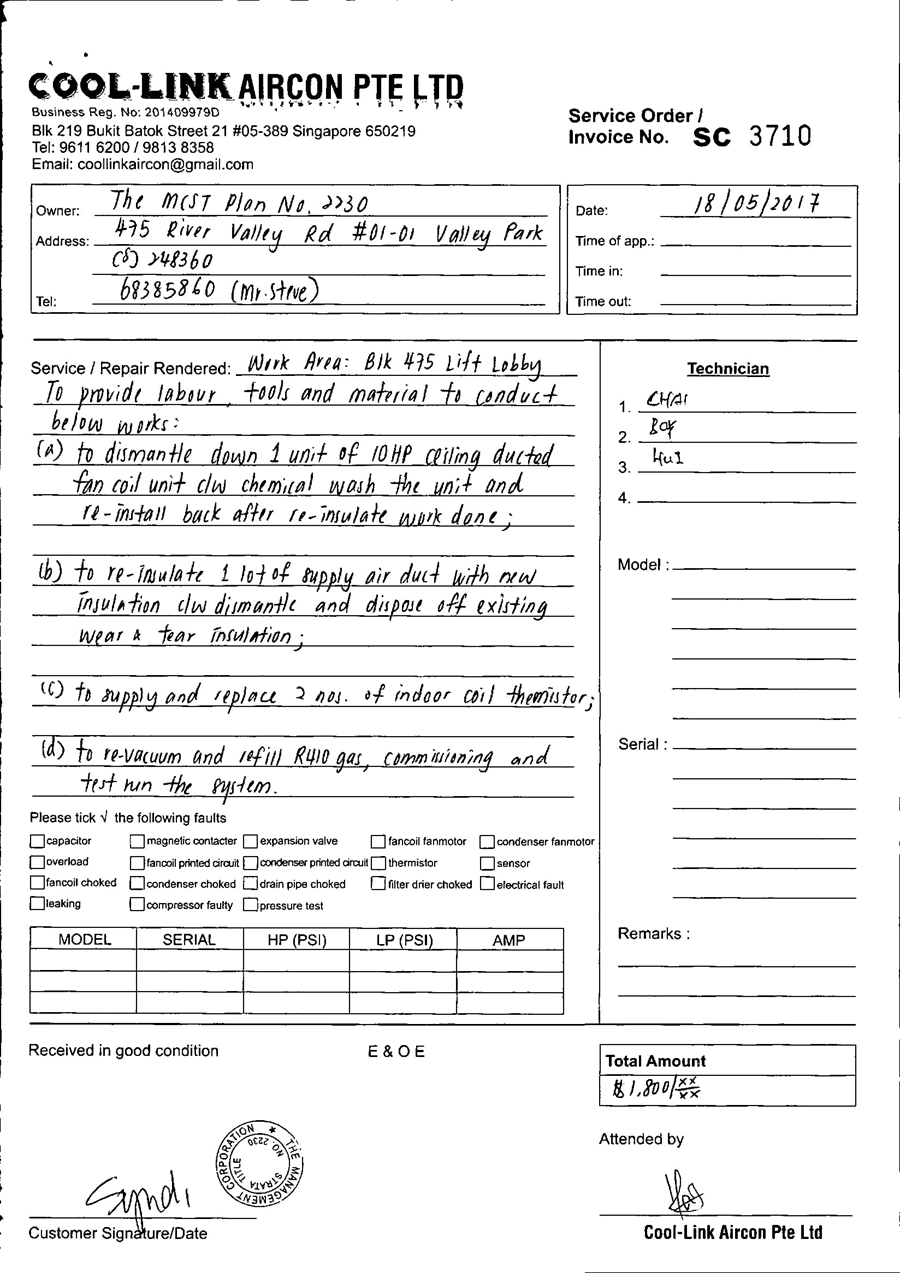 COOL-LINK AIRCON PTE LTD
Business Reg. No: 201409979D
Blk 219 Bukit Batok Street 21 #05-389 Singapore 650219
Tel: 9611 6200 / 9813 8358
Email: coollinkaircon@gmail.com
Service Order /
Invoice No. SC 3710
Owner: The MCST Plan No. 2230
Address: 475 River Valley Rd #01-01 Valley Park
(S) 248360
Tel: 68385860 (Mr. Steve)
Date: 18/05/2017
Time of app.:
Time in:
Time out:
Service / Repair Rendered: Work Area: Blk 475 Lift Lobby
To provide labour, tools and material to conduct
below works:
(a) to dismantle down 1 unit of 10HP ceiling ducted
fan coil unit c/w chemical wash the unit and
re-install back after re-insulate work done;
(b) to re-insulate 1 lot of supply air duct with new
insulation c/w dismantle and dispose off existing
wear & tear insulation;
(c) to supply and replace 2 nos. of indoor coil themistor;
(d) to re-vacuum and refill R410 gas, commissioning and
test run the system.
Technician
1. CHAI
2. BOY
3. HUI
4.
Model :
Serial :
Remarks :
Please tick √ the following faults
capacitor magnetic contacter expansion valve fancoil fanmotor condenser fanmotor
overload fancoil printed circuit condenser printed circuit thermistor sensor
fancoil choked condenser choked drain pipe choked filter drier choked electrical fault
leaking compressor faulty pressure test
MODEL SERIAL HP (PSI) LP (PSI) AMP
Received in good condition E & O E
Total Amount
$1,800/xx/xx
Attended by
THE MANAGEMENT CORPORATION
STRATA TITLE NO. 2230
Customer Signature/Date
Cool-Link Aircon Pte Ltd